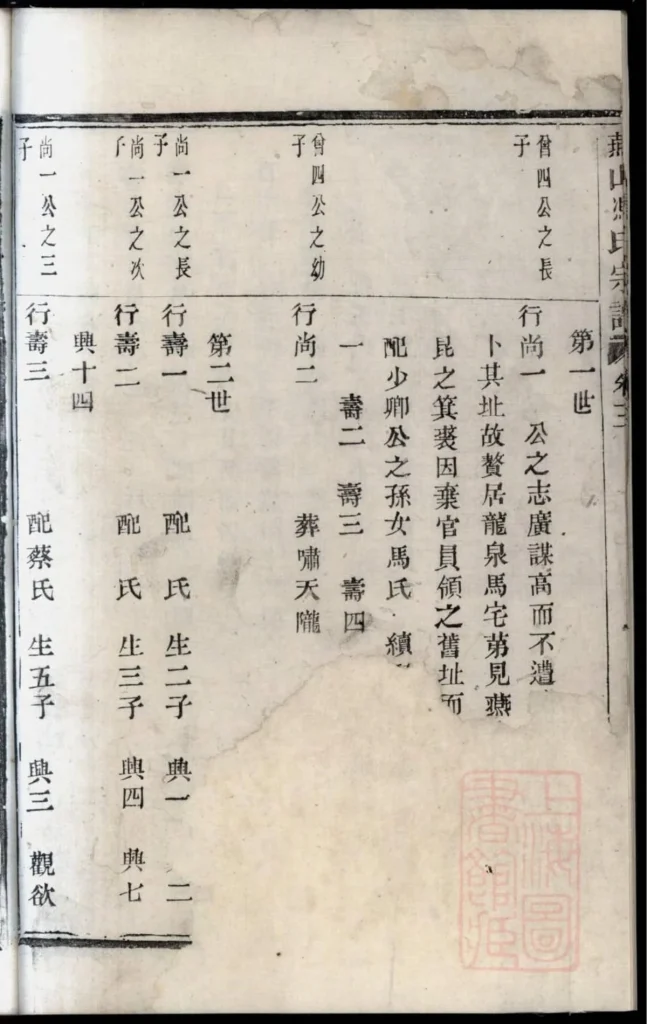 燕山馮氏宗譜 卷三
第一世
曾四公之長
子
行尚一 公之志廣謀高而不遭
卜其址故贅居龍泉馬宅第見燕
昆之箕裘因棄官員領之舊址而
配少卿公之孫女馬氏 續
一 壽二 壽三 壽四
曾四公之幼
子
行尚二 葬嘯天隴
第二世
尚一公之長
子
行壽一 配 氏 生二子 興一 二
尚一公之次
子
行壽二 配 氏 生三子 興四 興七
興十四
尚一公之三
子
行壽三 配蔡氏 生五子 興三 觀欲
上海圖
書館藏